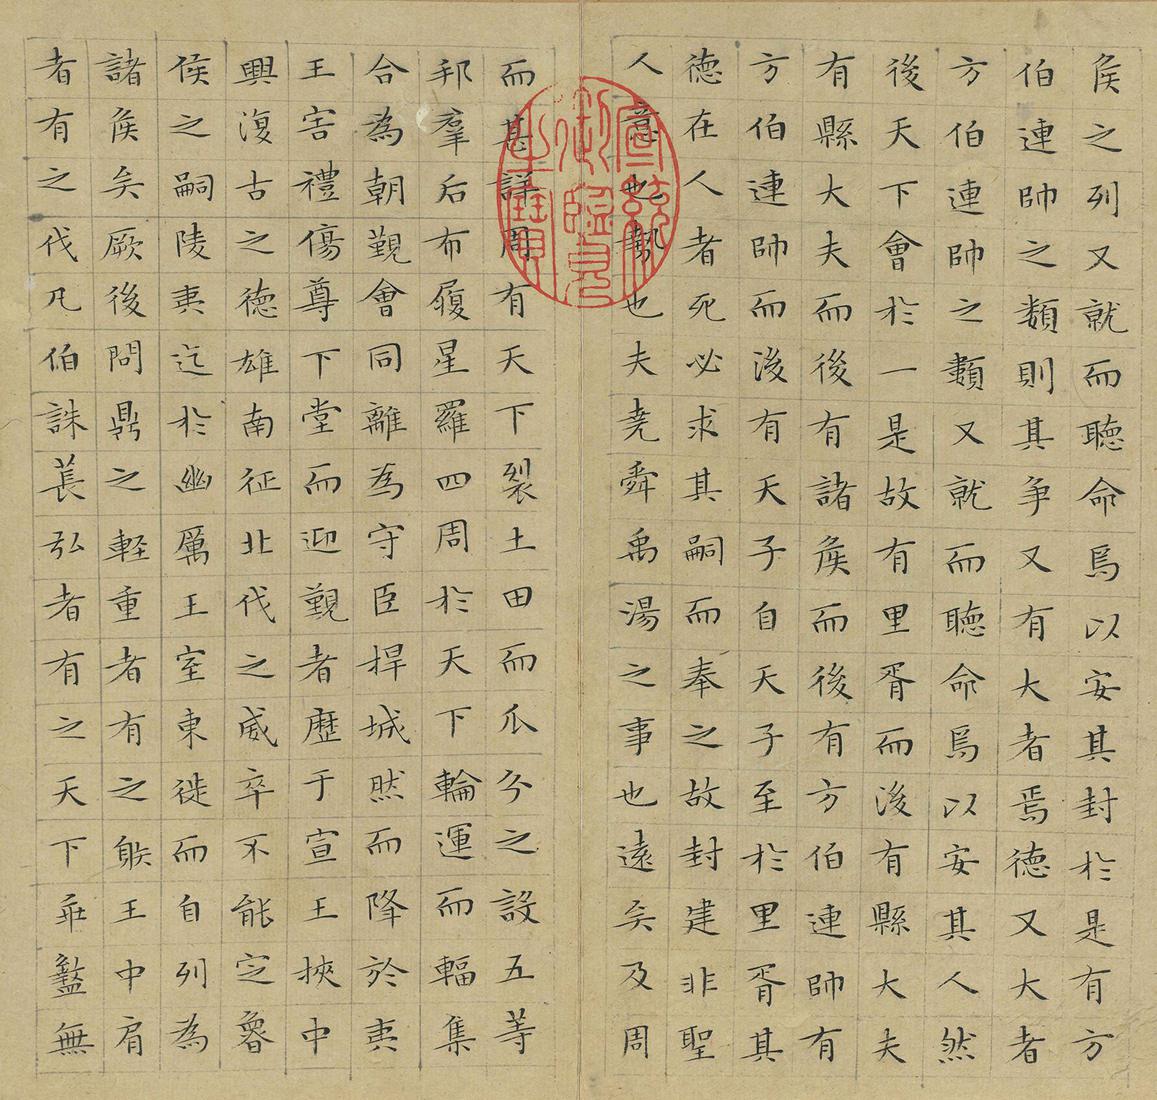 侯之列又就而聽命焉以安其封於是有方
伯連帥之類則其争又有大者焉德又大者
方伯連帥之類又就而聽命焉以安其人然
後天下會於一是故有里胥而後有縣大夫
有縣大夫而後有諸侯而後有方伯連帥有
方伯連帥而後有天子自天子至於里胥其
德在人者死必求其嗣而奉之故封建非聖
人意也勢也夫堯舜禹湯之事也遠矣及周
宣統
御覽
之寶
而甚詳周有天下裂土田而瓜分之設五等
邦羣后布履星羅四周於天下輪運而輻集
合為朝覲會同離為守臣捍城然而降於夷
王害禮傷尊下堂而迎覲者歷于宣王挾中
興復古之德雄南征北伐之威卒不能定魯
侯之嗣陵夷迄於幽厲王室東徙而自列為
諸侯矣厥後問鼎之輕重者有之䠶王中肩
者有之伐凡伯誅萇弘者有之天下乖盭無